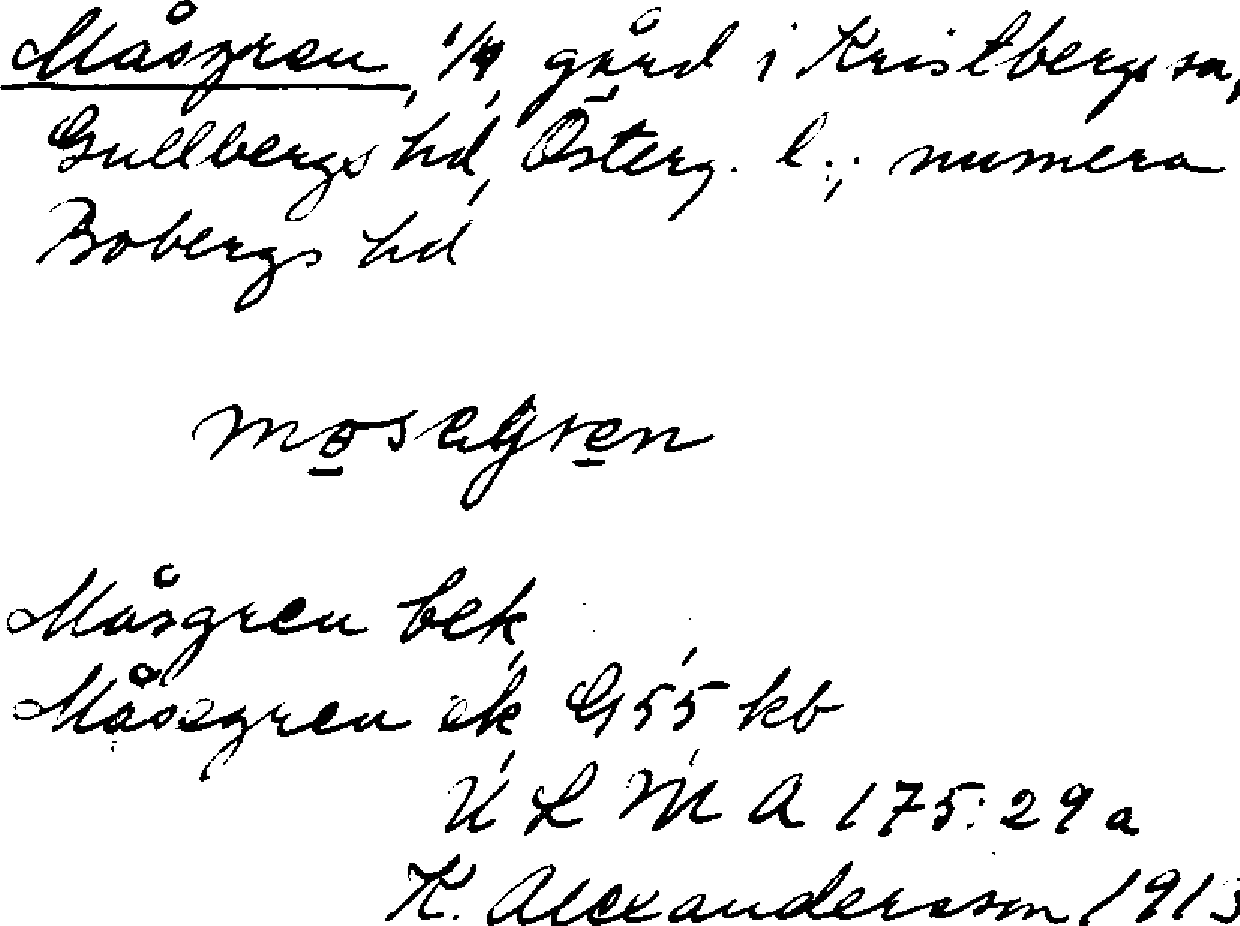 Måsgren, 1/4, gård i Kristbergs sn,
Gullbergs hd, Österg. l.; numera
Bobergs hd
Måsgren bek,
Måsegren ek G 55 kb
U L M A 175:29a
K. Alexandersson 1913